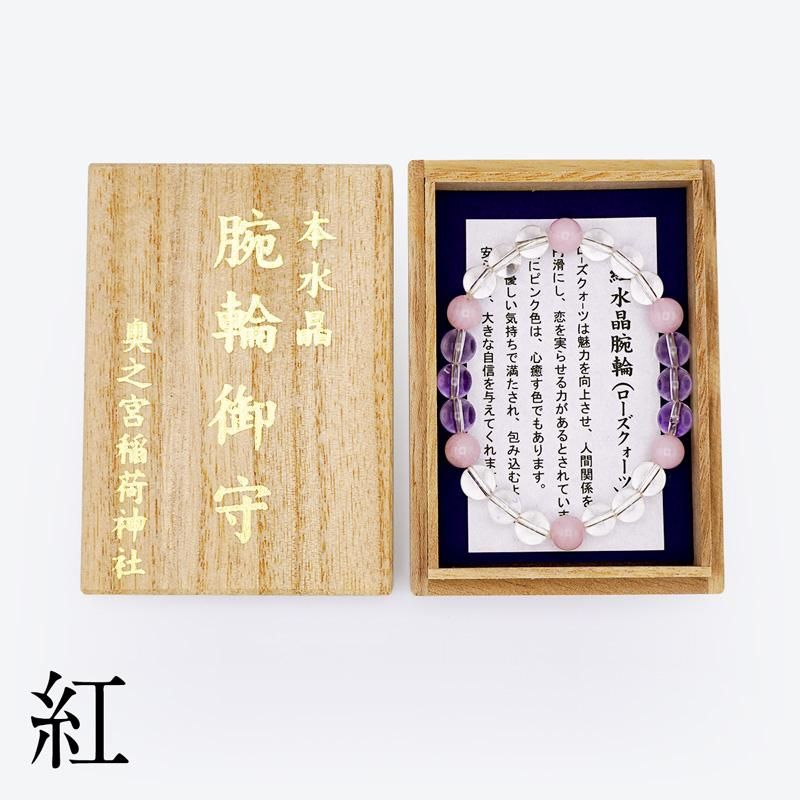 本水晶
腕輪御守
奥之宮稲荷神社
紅水晶腕輪(ローズクォーツ
ローズクォーツは魅力を向上させ、人間関係を
円滑にし、恋を実らせる力があるとされていま
にピンク色は、心癒す色でもあります。
優しい気持ちで満たされ、包み込むよ
安ら、大きな自信を与えてくれま
紅